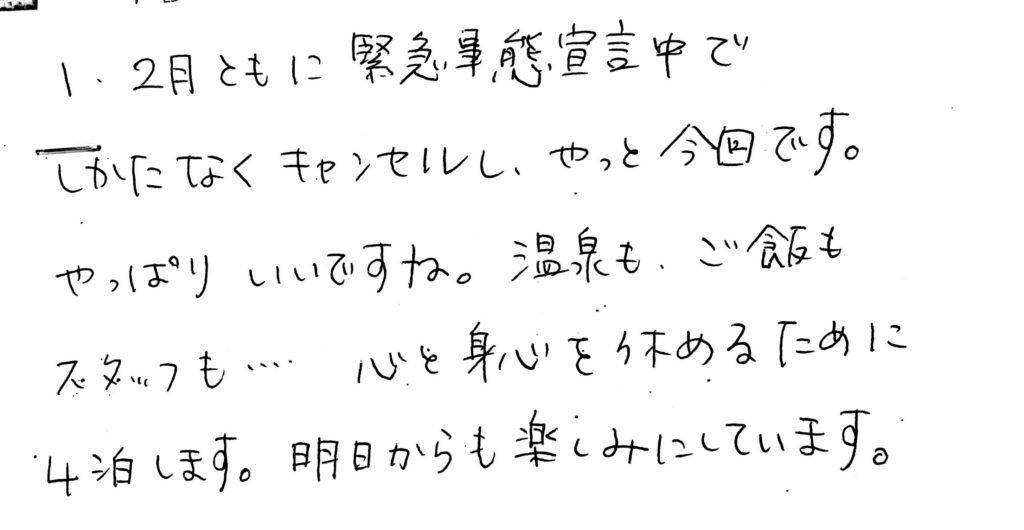 1、2月ともに緊急事態宣言中で
しかたなくキャンセルし、やっと今回です。
やっぱりいいですね。温泉も、ご飯も
スタッフも… 心と身心を休めるために
4泊します。明日からも楽しみにしています。